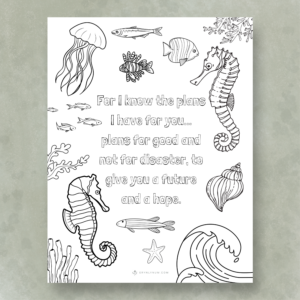 For I know the plans
I have for you...
plans for good and
not for disaster, to
give you a future
and a hope.